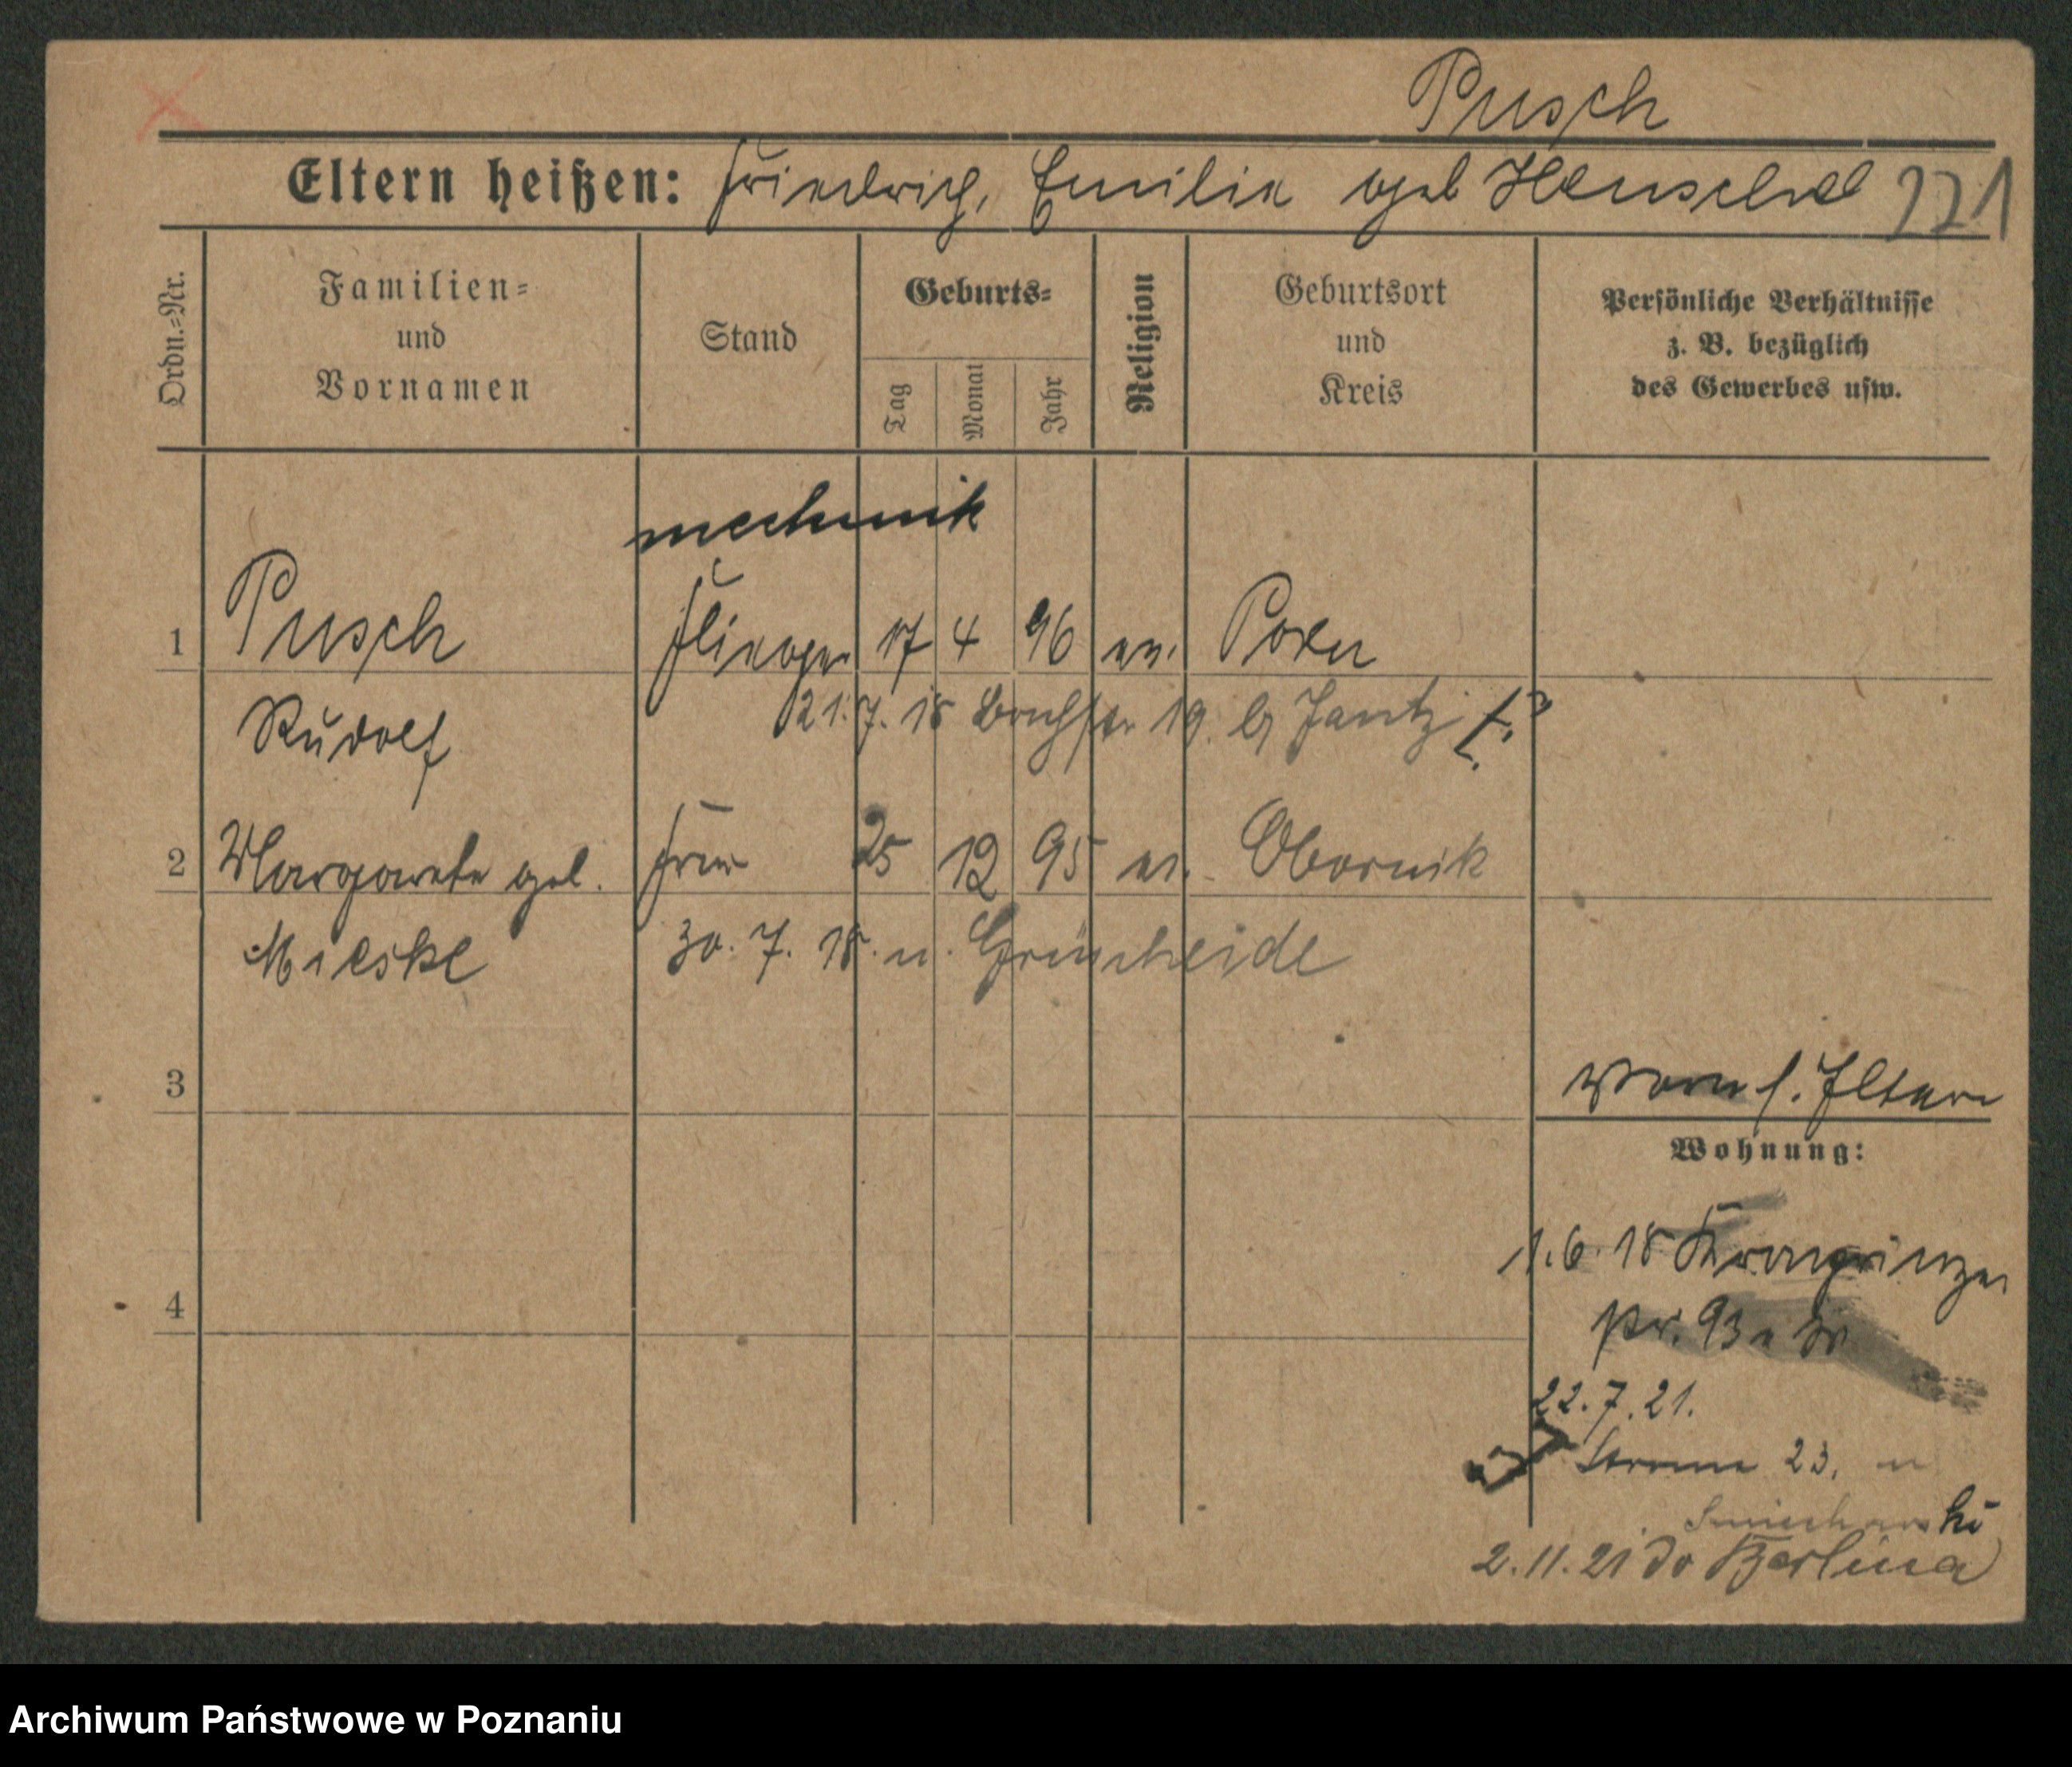 Pusch
Eltern heißen: Friedrich, Emilie geb Henschel 221
Ordn.=Nr.
Familien=
und
Vornamen
Stand
Geburts=
Tag
Monat
Jahr
Religion
Geburtsort
und
Kreis
Persönliche Verhältnisse
z. B. bezüglich
des Gewerbes usw.
mechanik
1 Pusch Flieger 17 4 96 ev. Posen
Rudolf 21.7.18 19. b Jantz
2 Margarete geb. Frau 25 12 95 ev. Obornik
Mieske 30. 7. 18. n. Grünheide
3
vorn s. Eltern
Wohnung:
1.6.18 Kronprinzen
4
pr. 93
22.7.21.
23.
2.11.21 do Berlina
Archiwum Państwowe w Poznaniu